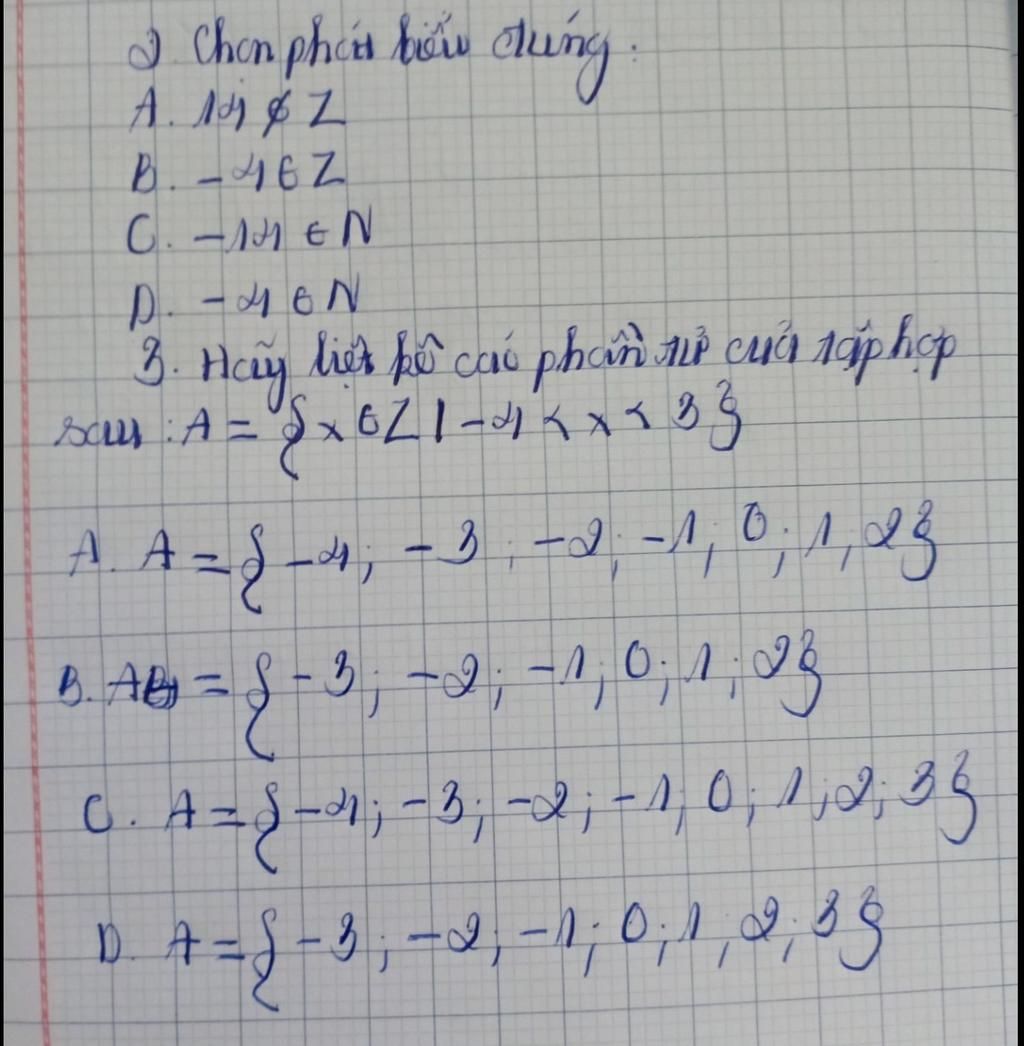 2) Chọn phát biểu đúng.
A. 14 ∉ Z
B. -4 ∈ Z
C. -14 ∈ N
D. -4 ∈ N
3. Hãy liệt kê các phần tử của tập hợp
sau : A = { x ∈ Z | -4 < x < 3 }
A. A = { -4; -3; -2; -1; 0; 1; 2 }
B. A = { -3; -2; -1; 0; 1; 2 }
C. A = { -4; -3; -2; -1; 0; 1; 2; 3 }
D. A = { -3; -2; -1; 0; 1; 2; 3 }